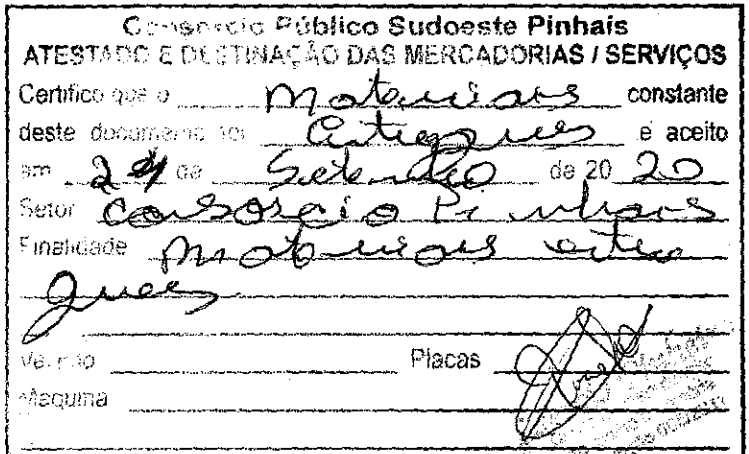 Consorcio Público Sudoeste Pinhais
ATESTADO E DESTINAÇÃO DAS MERCADORIAS / SERVIÇOS
Certifico que o Materiais constante
deste documento foi Entregues e aceito
em 24 de Setembro de 2020
Setor Consorcio Pinhais
Finalidade Materiais entre
gues
Veículo Placas
Maquina